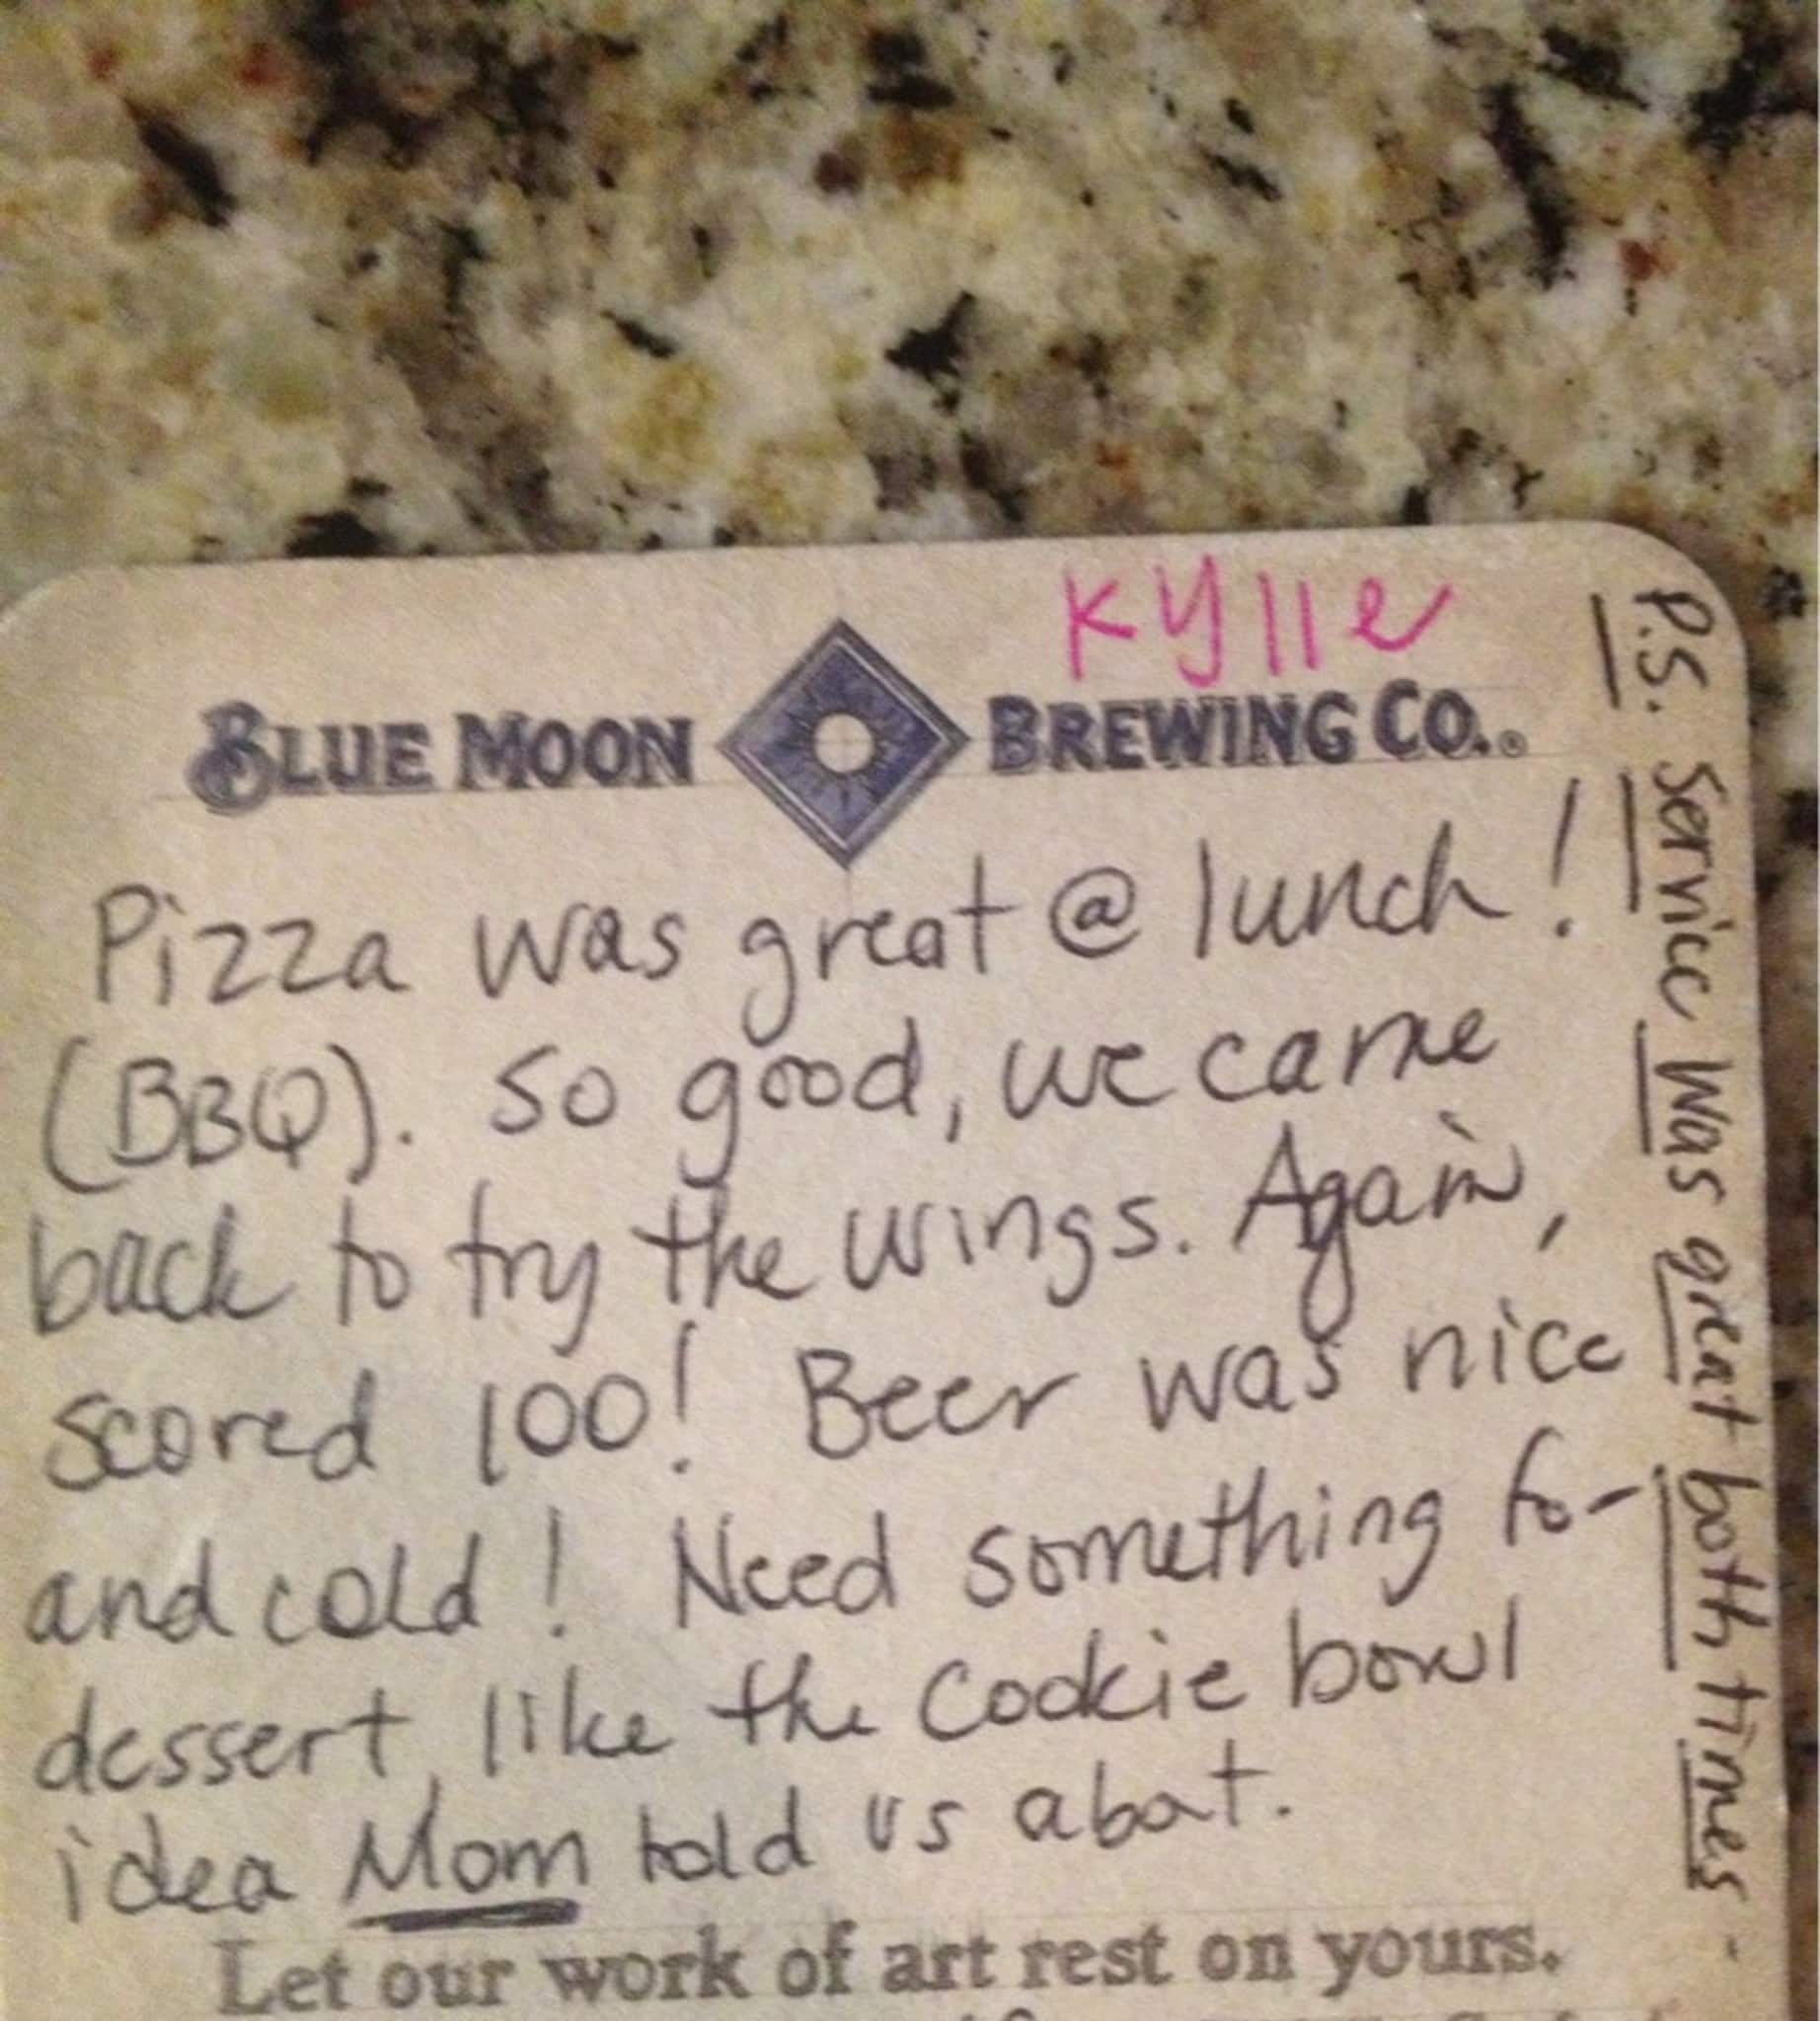 Kylle
BLUE MOON BREWING CO.®
Pizza was great @ lunch!
(BBQ). So good, we came
back to try the wings. Again,
scored 100! Beer was nice
and cold! Need something for
dessert, like the Cookie bowl
idea Mom told us abat.
Let our work of art rest on yours.
P.S. Service was great both times -